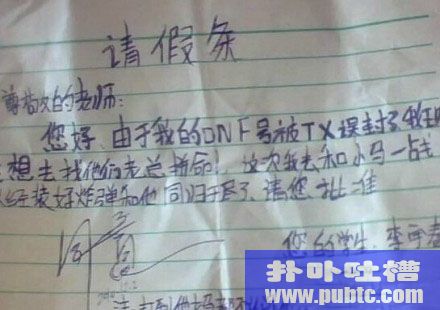 请假条
尊敬的老师:
您好,由于我的DNF号被TX误封了,我
想去找他们老总拼命!这次我去和小马一战
已经装好炸弹和他同归于尽了,请您批准
同意
您的学生:李
扑卟吐槽
www.pubtc.com